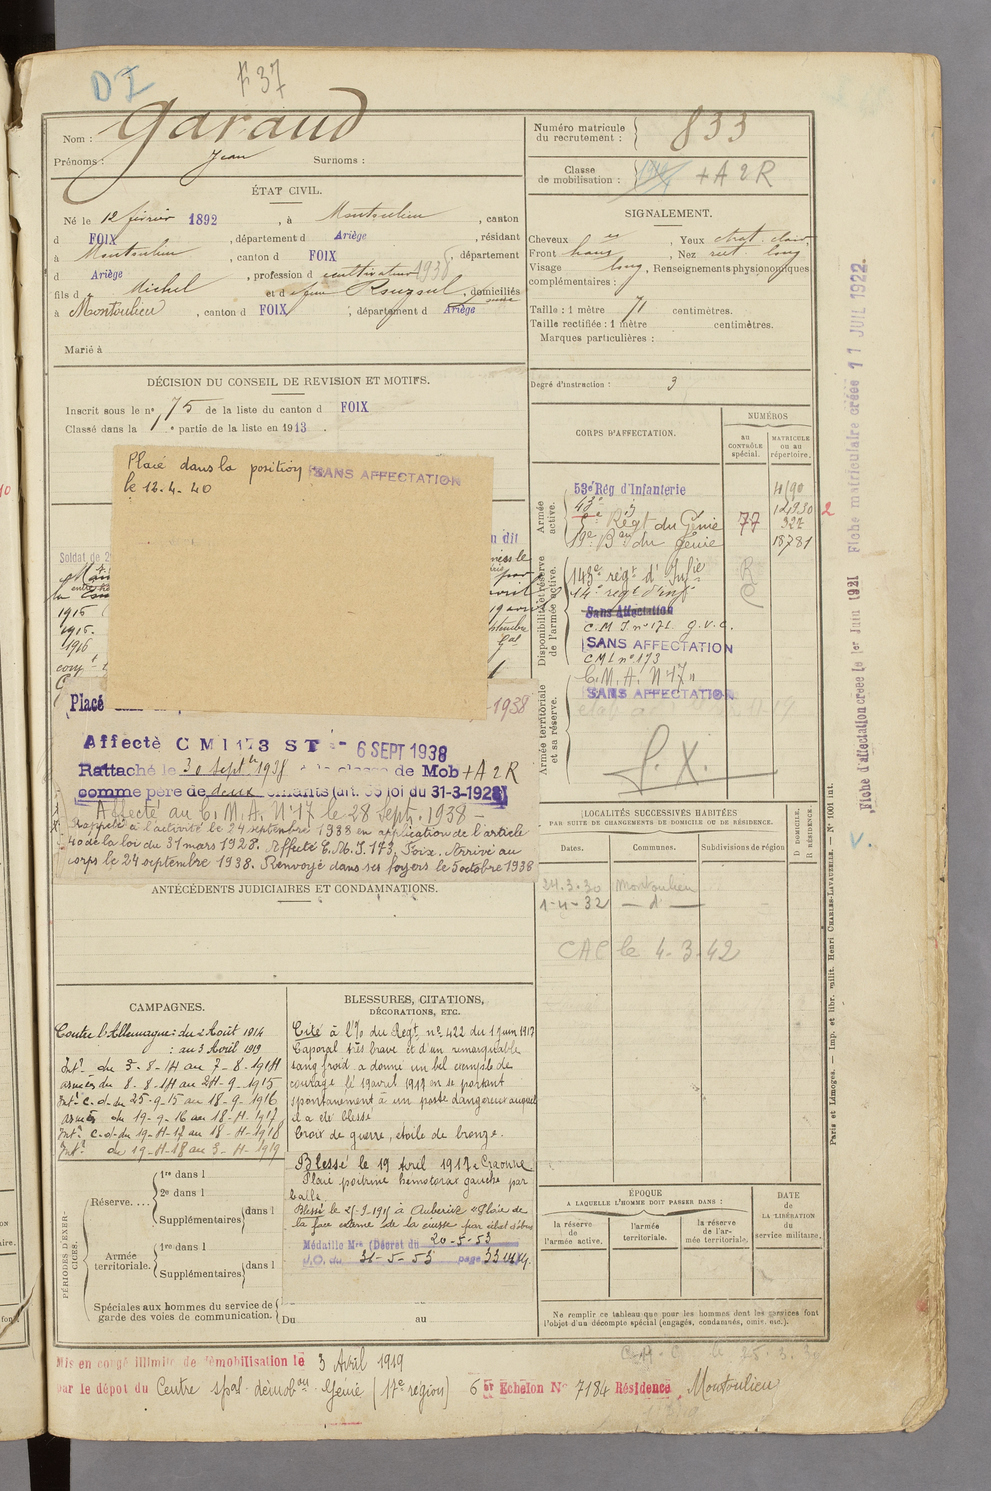 DI
F37
Nom : Garaud
Prénoms : Jean Surnoms :
Numéro matricule du recrutement : 833
Classe de mobilisation : + A 2 R
ÉTAT CIVIL.
Né le 12 février 1892, à Montoulieu, canton
d FOIX, département d Ariège, résidant
à Montoulieu, canton d FOIX, département
d Ariège, profession d cultivateur 1938
fils d Michel et d Rougoul, domiciliés
à Montoulieu, canton d FOIX, département d Ariège
Marié à
SIGNALEMENT.
Cheveux , Yeux chat. clair,
Front haut, Nez rect. long
Visage long, Renseignements physionomiques
complémentaires :
Taille : 1 mètre 71 centimètres.
Taille rectifiée : 1 mètre centimètres.
Marques particulières :
Degré d'instruction : 3
DÉCISION DU CONSEIL DE REVISION ET MOTIFS.
Inscrit sous le n° 75 de la liste du canton d FOIX
Classé dans la 1 e partie de la liste en 1913.
Placé dans la position SANS AFFECTATION
le 12.4.40
Soldat de 2
1915
1915.
1916
Placé
1938
Affecté C M I 173 ST 6 SEPT 1938
Rattaché le 30 septbre 1938 classe de Mob + A 2 R
comme père de deux enfants (art. 58 loi du 31-3-1928)
Affecté au C.M.A. N° 17 le 28 sept. 1938 -
Rappelé à l'activité le 24 septembre 1938 en application de l'article
40 de la loi du 31 mars 1928. Affecté C.M.I. 173, Foix. Arrivé au
corps le 24 septembre 1938. Renvoyé dans ses foyers le 5 octobre 1938
CORPS D'AFFECTATION.
NUMÉROS
AU CONTRÔLE spécial.
MATRICULE ou au répertoire.
Armée active.
53e Rég d'Infanterie 4190
43e 12930 2
5e Régt du Génie 77 327
19e Bon du Génie 18781
Disponibilité et réserve de l'armée active.
143e régt d'Infie R
14e régt d'inf C
Sans Affectation
C.M.I n° 171 G.V.C.
SANS AFFECTATION
C M I n° 173
Armée territoriale et sa réserve.
C.M.A. N° 17
SANS AFFECTATION
f. X.
LOCALITÉS SUCCESSIVES HABITÉES
PAR SUITE DE CHANGEMENTS DE DOMICILE OU DE RÉSIDENCE.
Dates. Communes. Subdivisions de région D DOMICILE. R RÉSIDENCE.
24.3.30 Montoulieu
1-4-32 — d° —
CAC le 4.3.42
ANTÉCÉDENTS JUDICIAIRES ET CONDAMNATIONS.
CAMPAGNES.
Contre l'Allemagne : du 2 Août 1914
: au 3 Avril 1919
Intr du 3-8-14 au 7-8-1914
armées du 8-8-14 au 24-9-1915
Intr c.d. du 25-9-15 au 18-9-1916
armées du 19-9-16 au 18-4-1917
Intr c.d. du 19-4-17 au 18-4-1918
Intr du 19-4-18 au 3-4-1919
BLESSURES, CITATIONS, DÉCORATIONS, ETC.
Cité à l'O/ du Régt n° 422 du 1 juin 1917
Caporal très brave et d'un remarquable
sang froid a donné un bel exemple de
courage le 19 avril 1917 en se portant
spontanément à un poste dangereux auquel
il a été blessé
Croix de guerre, étoile de bronze.
Blessé le 19 Avril 1917 à Craonne
Plaie poitrine hemotorax gauche par
balle.
Blessé le 25-9-1915 à Auberive "Plaie de
la face externe de la cuisse par éclat d'obus
Médaille Mre (Décret du 20-5-53
J.O. du 31-5-53 page
PÉRIODES D'EXERCICES.
Réserve.... 1re dans l
2e dans l
Supplémentaires dans l
Armée territoriale. 1re dans l
Supplémentaires dans l
Spéciales aux hommes du service de garde des voies de communication. Du au
ÉPOQUE
A LAQUELLE L'HOMME DOIT PASSER DANS :
la réserve de l'armée active.
l'armée territoriale.
la réserve de l'armée territoriale.
DATE DE LA LIBÉRATION du service militaire.
Ne remplir ce tableau que pour les hommes dont les services font
l'objet d'un décompte spécial (engagés, condamnés, omis, etc.).
Mis en congé illimité de démobilisation le 3 Avril 1919
par le dépôt du Centre spal démobon Génie (17e région) 6 Echelon N° 7184 Résidence Montoulieu
Fiche d'affectation créée le 1er Juin 1921 Fiche matriculaire créée 11 JUIL 1922.
Paris et Limoges. — Imp. et libr. milit. Henri CHARLES-LAVAUZELLE. — N° 1001 int.